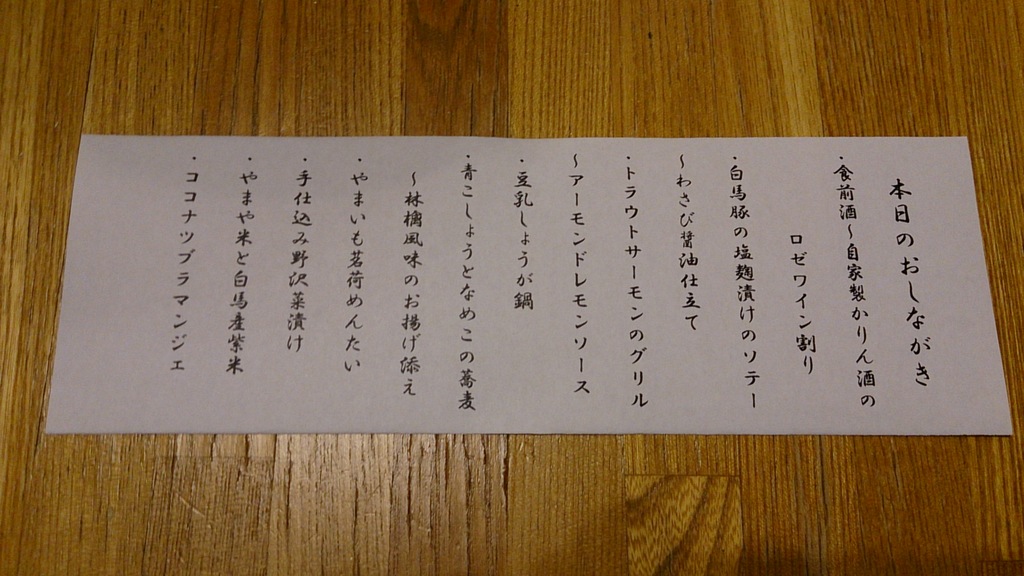 本日のおしながき
・食前酒～自家製かりん酒の
ロゼワイン割り
・白馬豚の塩麹漬けのソテー
～わさび醤油仕立て
・トラウトサーモンのグリル
～アーモンドレモンソース
・豆乳しょうが鍋
・青こしょうとなめこの蕎麦
～林檎風味のお揚げ添え
・やまいも茗荷めんたい
・手仕込み野沢菜漬け
・やまや米と白馬産紫米
・ココナツブラマンジェ